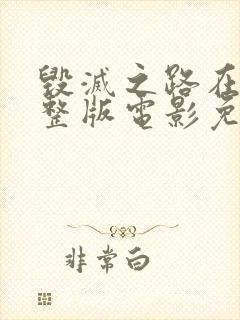 毀滅之路在
整版電影免
非常白